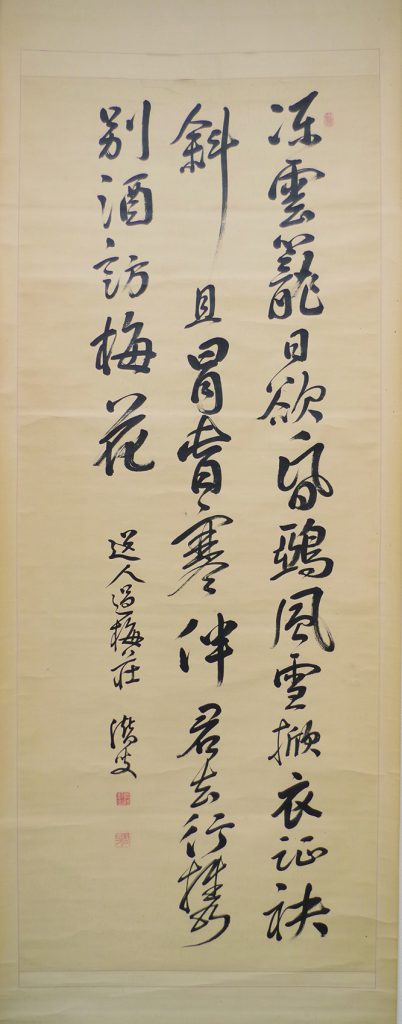 凍雲籠日欲昏鴉風雪掀衣袂
斜且冒寒伴君去行攜
別酒訪梅花
送人過梅莊 潛叟